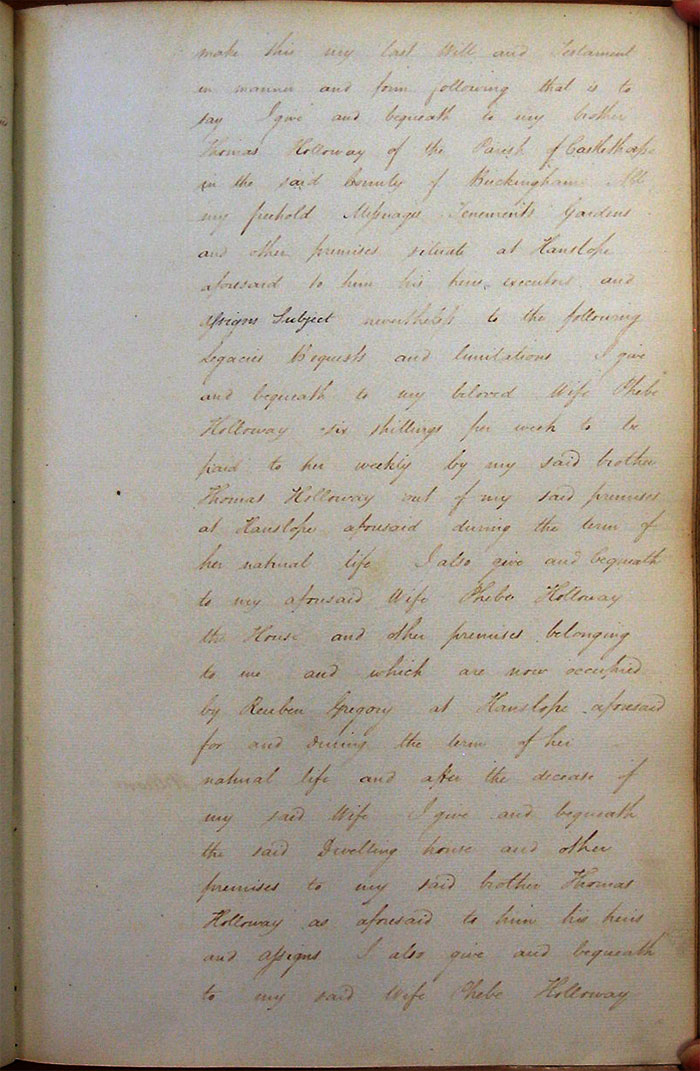 make this my last Will and Testament
in manner and form following that is to
say I give and bequeath to my brother
Thomas Holloway of the Parish of Castlethorpe
in the said County of Buckingham All
my freehold Messuages Tenements Gardens
and other premises situate at Hanslope
aforesaid to him his heirs executors and
assigns Subject nevertheless to the following
Legacies Bequests and limitations I give
and bequeath to my beloved Wife Phebe
Holloway six shillings per week to be
paid to her weekly by my said brother
Thomas Holloway out of my said premises
at Hanslope aforesaid during the term of
her natural life I also give and bequeath
to my aforesaid Wife Phebe Holloway
the House and other premises belonging
to me and which are now occupied
by Reuben Gregory at Hanslope aforesaid
for and during the term of her
natural life and after the decease of
my said Wife I give and bequeath
the said Dwelling house and other
premises to my said brother Thomas
Holloway as aforesaid to him his heirs
and assigns I also give and bequeath
to my said Wife Phebe Holloway